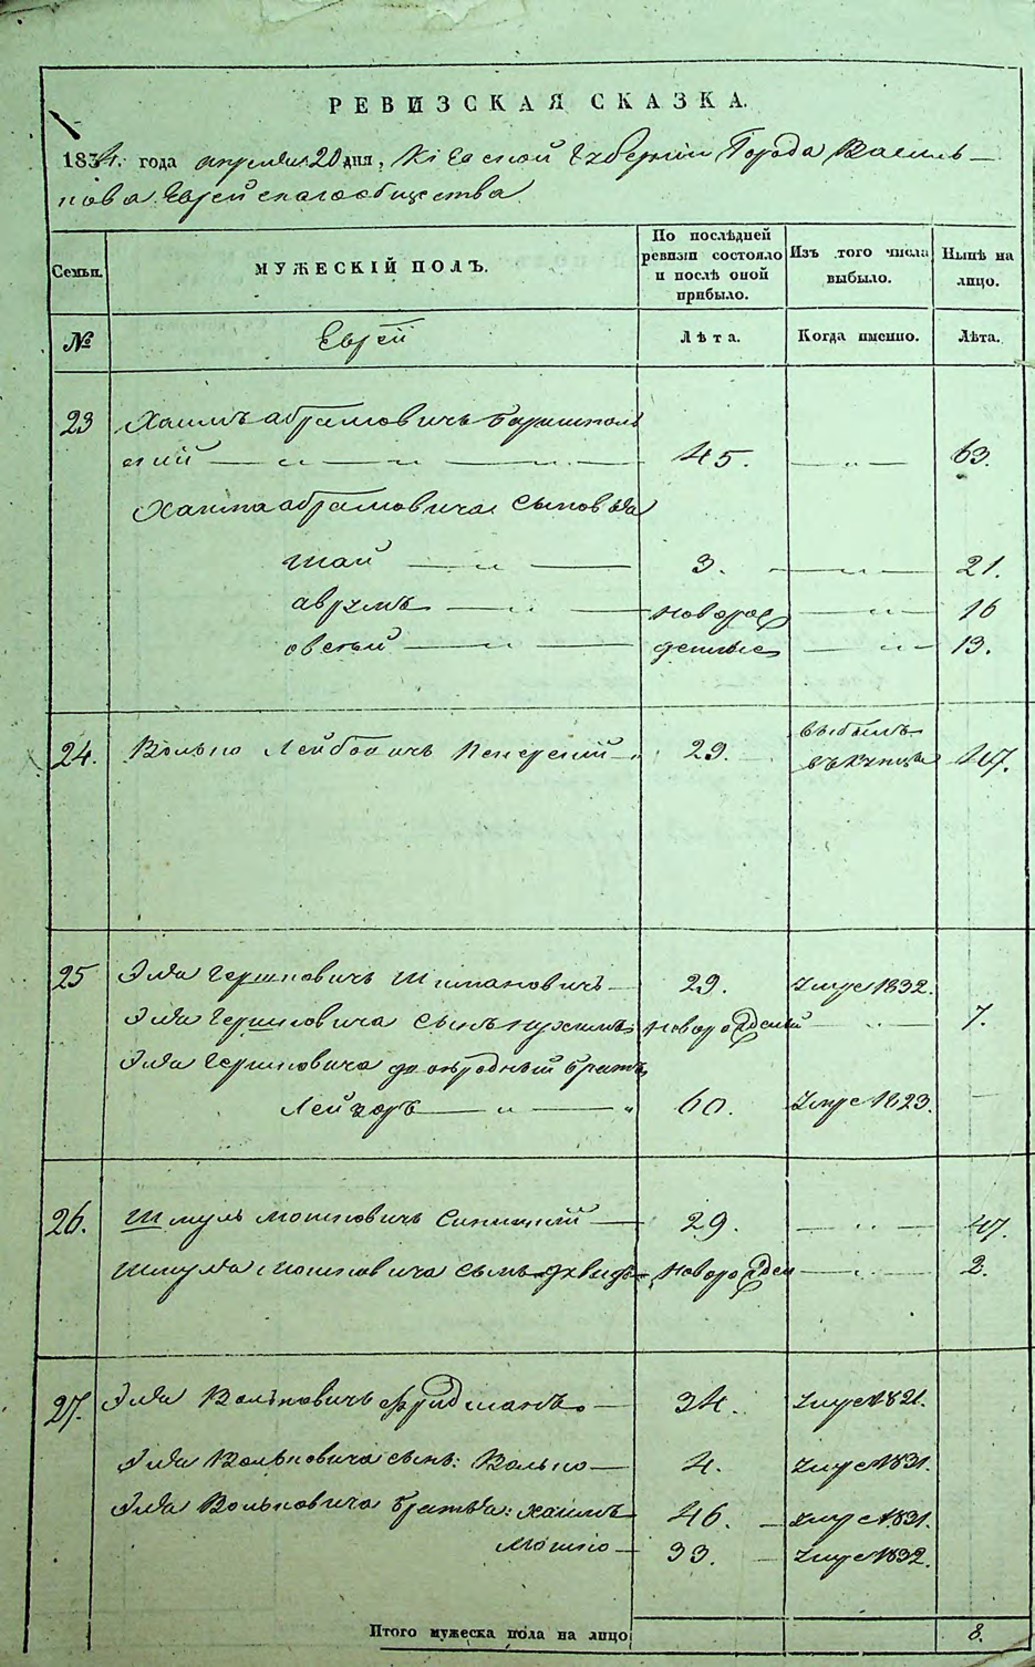 РЕВИЗСКАЯ СКАЗКА.
1834. года апреля 20 дня, Кіевской Губерніи Города Василь-
кова Еврейскаго общества
Семьи. МУЖЕСКІЙ ПОЛЪ. По послѣдней ревизіи состояло и послѣ оной прибыло. Изъ того числа выбыло. Нынѣ на лицо.
№ Еврей Лѣта. Когда именно. Лѣта.
23 Хаимъ абрамовичь Боришполь
скій 45. 63.
Хаима абрамовича Сыновья
шай 3. 21.
аврумъ новорож 16
овсей денные 13.
24. Волько Лейбовичь 29. выбылъ
въ купцы 47.
25 Элья Гершковичь Шимановичь 29. Умре 1832.
Элья Гершковича сынъ Нухимъ новорожденный 7.
Элья Гершковича двоюродный братъ
Лейзоръ 60. Умре 1823.
26. Шмуль Мошковичь 29. 47.
Шмуля Мошковича сынъ новорожден 2.
27. Элья Вольковичь Фридманъ. 34. Умре 1821.
Элья Вольковича сынъ: Волько 4. Умре 1831.
Элья Вольковича братья: хаимъ 46. Умре 1831.
Мошко 33. Умре 1832.
Итого мужеска пола на лицо 8.